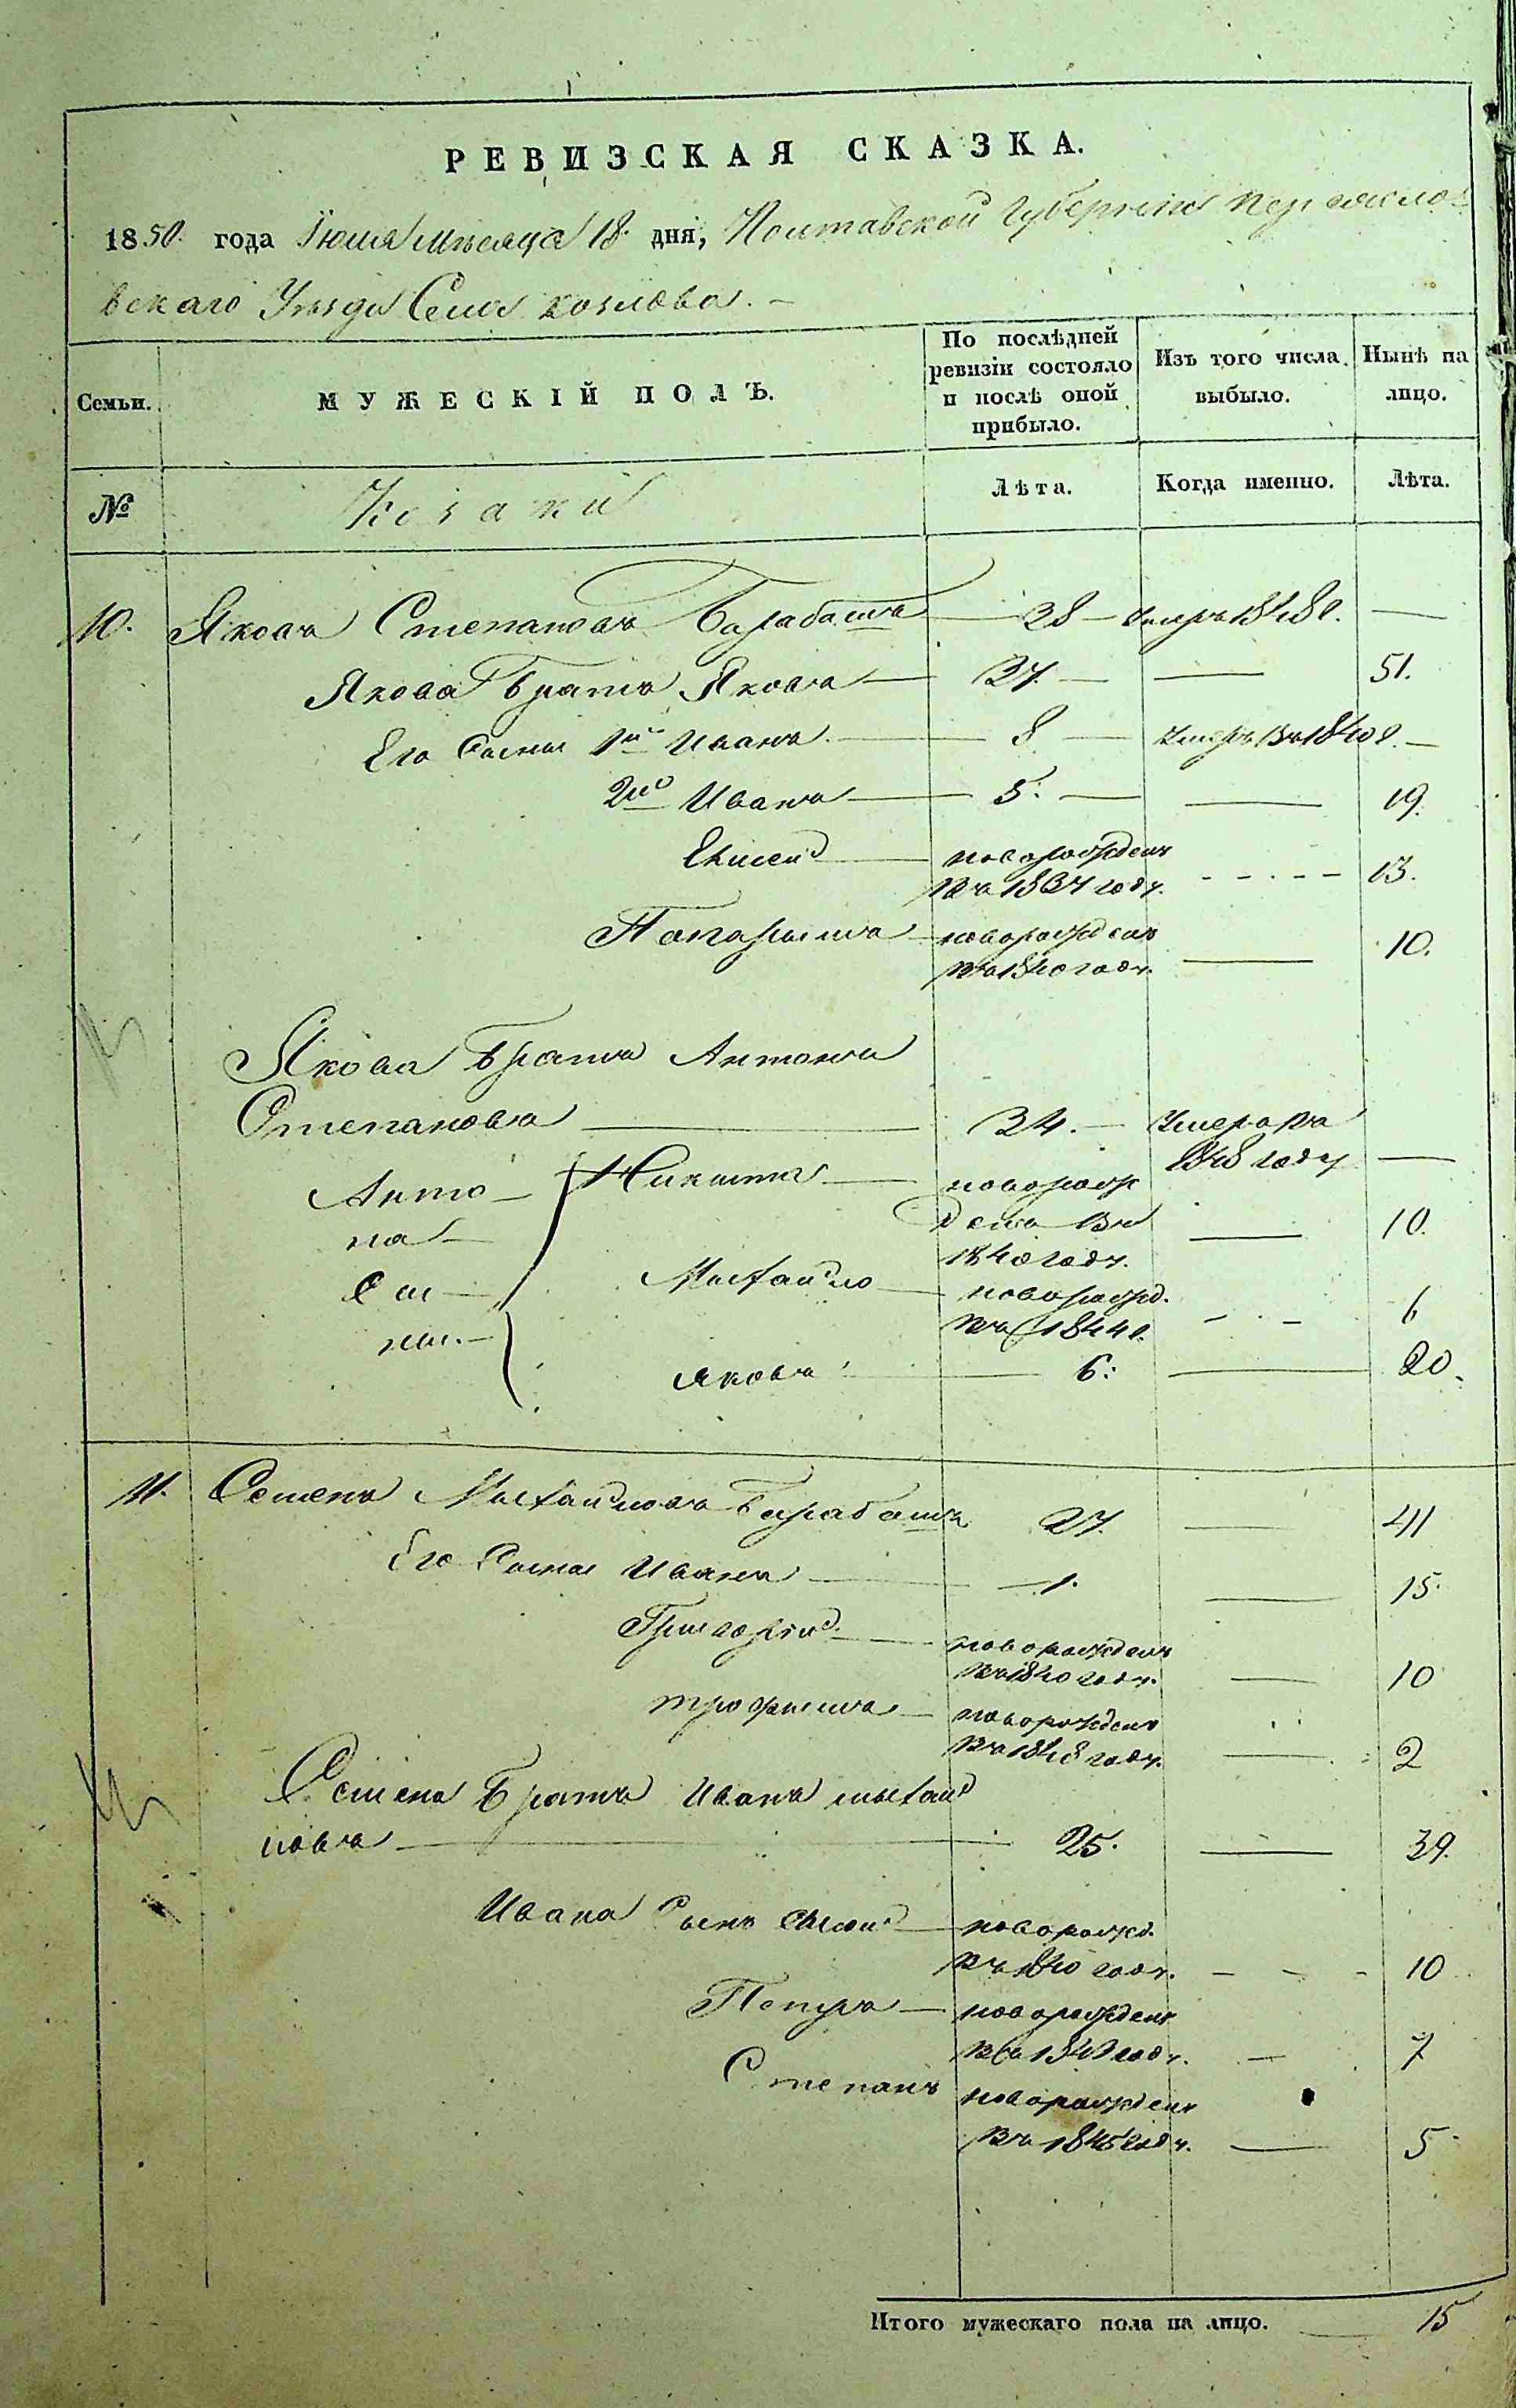 РЕВИЗСКАЯ СКАЗКА.
1850. года Іюня мѣсяца 18. дня, Полтавской Губерніи Переясло-
вскаго Уѣзда Села Козлова. —
Семьи.
МУЖЕСКІЙ ПОЛЪ.
По послѣдней ревизіи состояло и послѣ оной прибыло.
Изъ того числа выбыло.
Нынѣ на лицо.
№
Козаки
Лѣта.
Когда именно.
Лѣта.
10. Яковъ Степановъ Барабашъ — 28 — умеръ 1848 г. —
Якова братъ Яковъ — 37. — — 51.
Его Сыны 1й Иванъ — 8 — умеръ въ 1840 г. —
2й Иванъ — 5. — — 19.
новорожденъ
въ 1837 году. 13.
новорожденъ
въ 1840 году. — 10.
Якова братъ Антонъ
Степановъ — 34. — умеръ въ
1848 году —
Анто- Никита — новорож
на денъ въ — 10.
1840 году.
Сы- Михайло — новорожд.
въ 1844 г. 6
ны. —
Яковъ — 6. — 20.
11. Семенъ Михайловъ Барабашъ 27. — 41
Его Сыны Иванъ — 1. — 15.
Григорій — новорожденъ
въ 1840 году. — 10
Трофимъ — новорожденъ
въ 1848 году. — 2
Семена братъ Иванъ Михай
ловъ — 25. — 39.
Ивана Сынъ новорожд.
въ 1840 году. 10
Петръ — новорожденъ
въ 1843 году. — 7
Степанъ новорожденъ
въ 1845 году. — 5
Итого мужескаго пола на лицо. 15